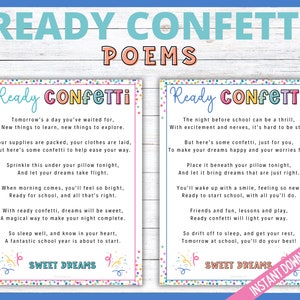 READY CONFETTI
POEMS
Ready CONFETTi
Tomorrow's a day you've waited for,
New things to learn, new things to explore.
Your supplies are packed, your clothes are laid,
But here's some confetti to help ease your way.
Sprinkle this under your pillow tonight,
And let your dreams take flight.
When morning comes, you'll feel so bright,
Ready for school, and all that's right.
With ready confetti, dreams will be sweet,
A magical way to make your night complete.
So sleep well, and know in your heart,
A fantastic school year is about to start.
SWEET DREAMS
Ready CONFETTi
The night before school can be a thrill,
With excitement and nerves, it's hard to be still
But here's some confetti, just for you,
To make your dreams happy and your worries
Place it beneath your pillow tonight,
And let it bring dreams that are just right.
You'll wake up with a smile, feeling so new
Ready to start school, with a lot to
Friends and fun, lessons and play,
Ready confetti will light your way.
So drift off to sleep, and get your rest,
Tomorrow at school, you'll do your best!
SWEET DREAMS
INSTANT DOWN